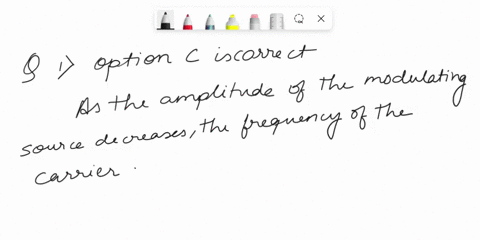 Q 1) option C iscorrect
As the amplitude of the modulating
source decreases, the frequency of the
carrier.